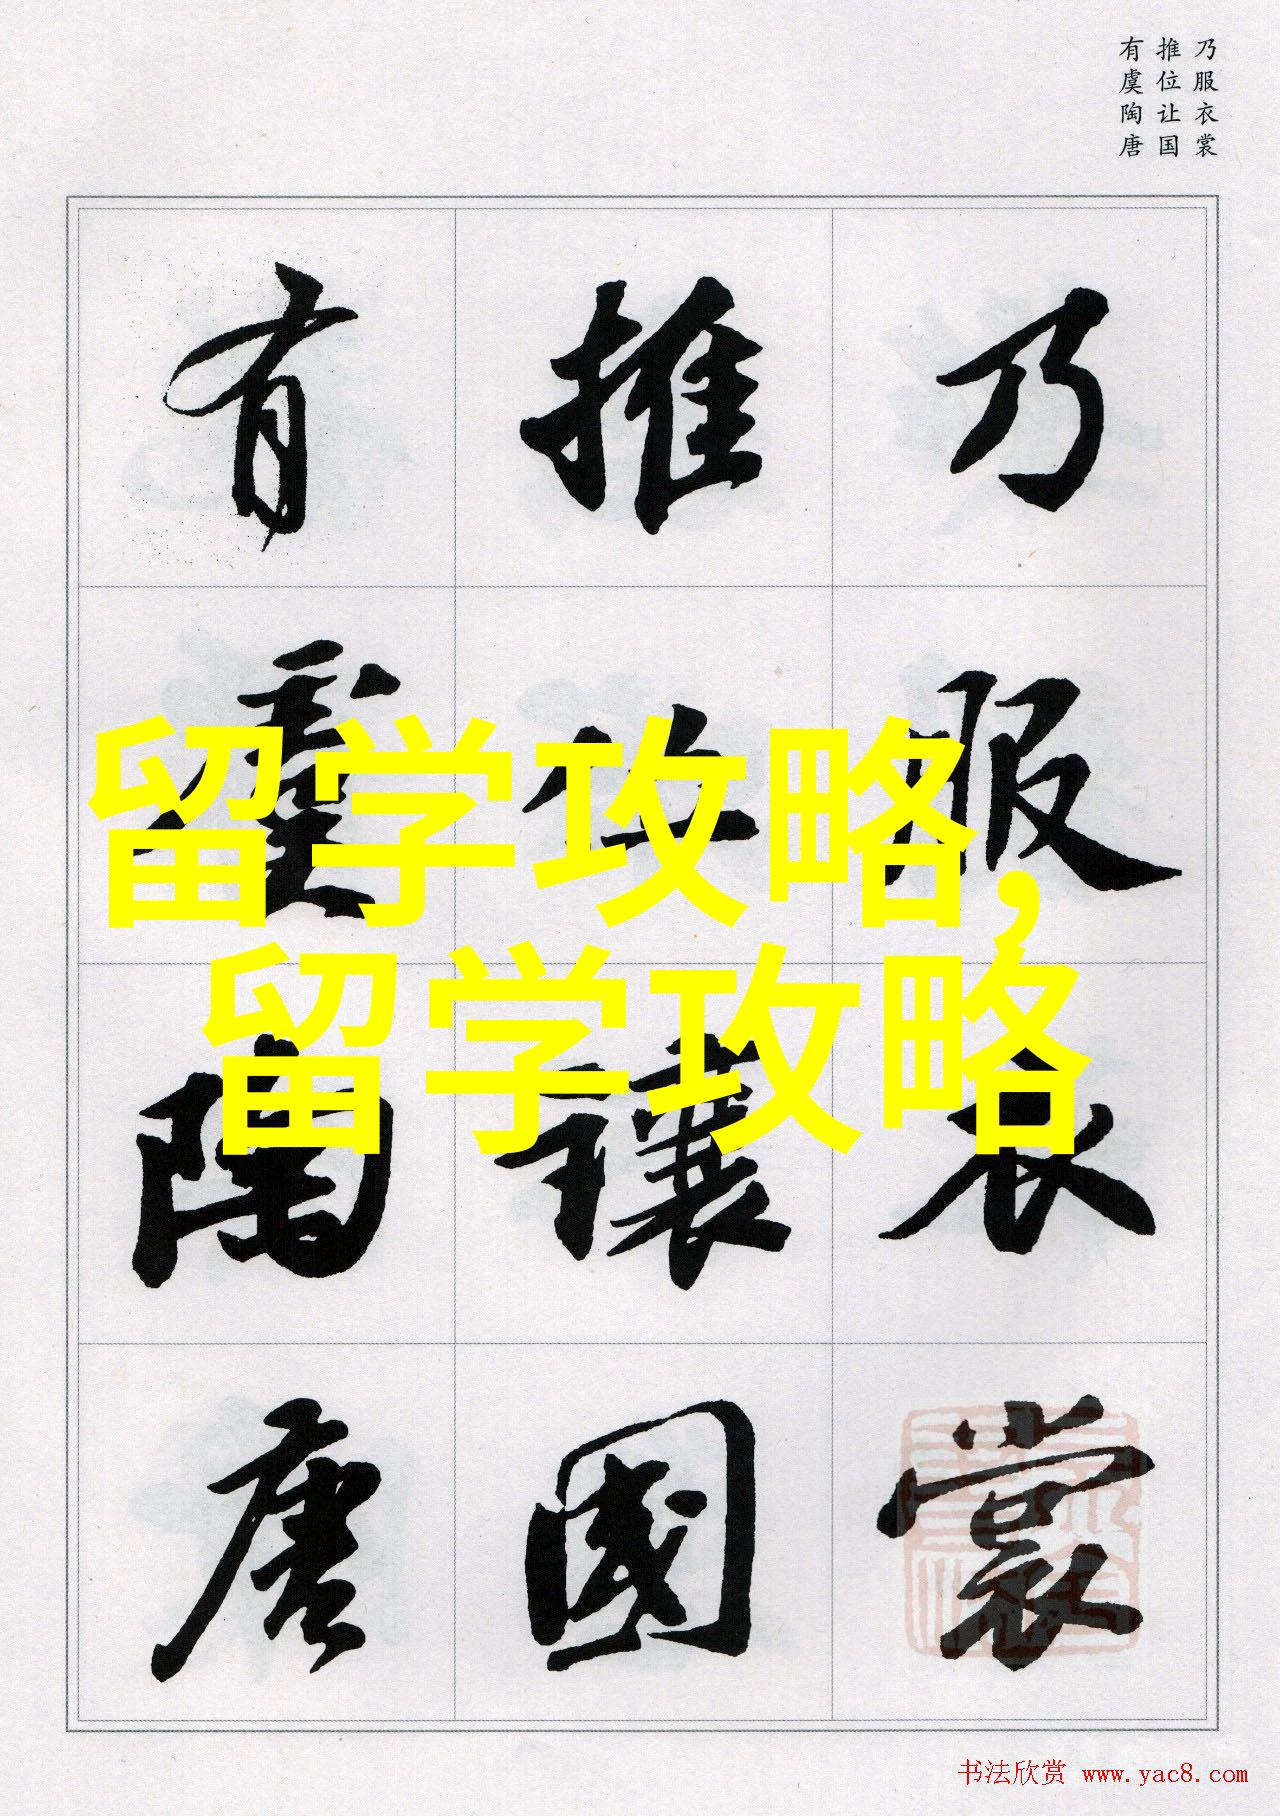 乃服衣裳
推位让国
有虞陶唐
乃服衣裳
推位讓國
有虞陶唐
留学攻略,
留学攻略
书法欣赏 www.yac8.com